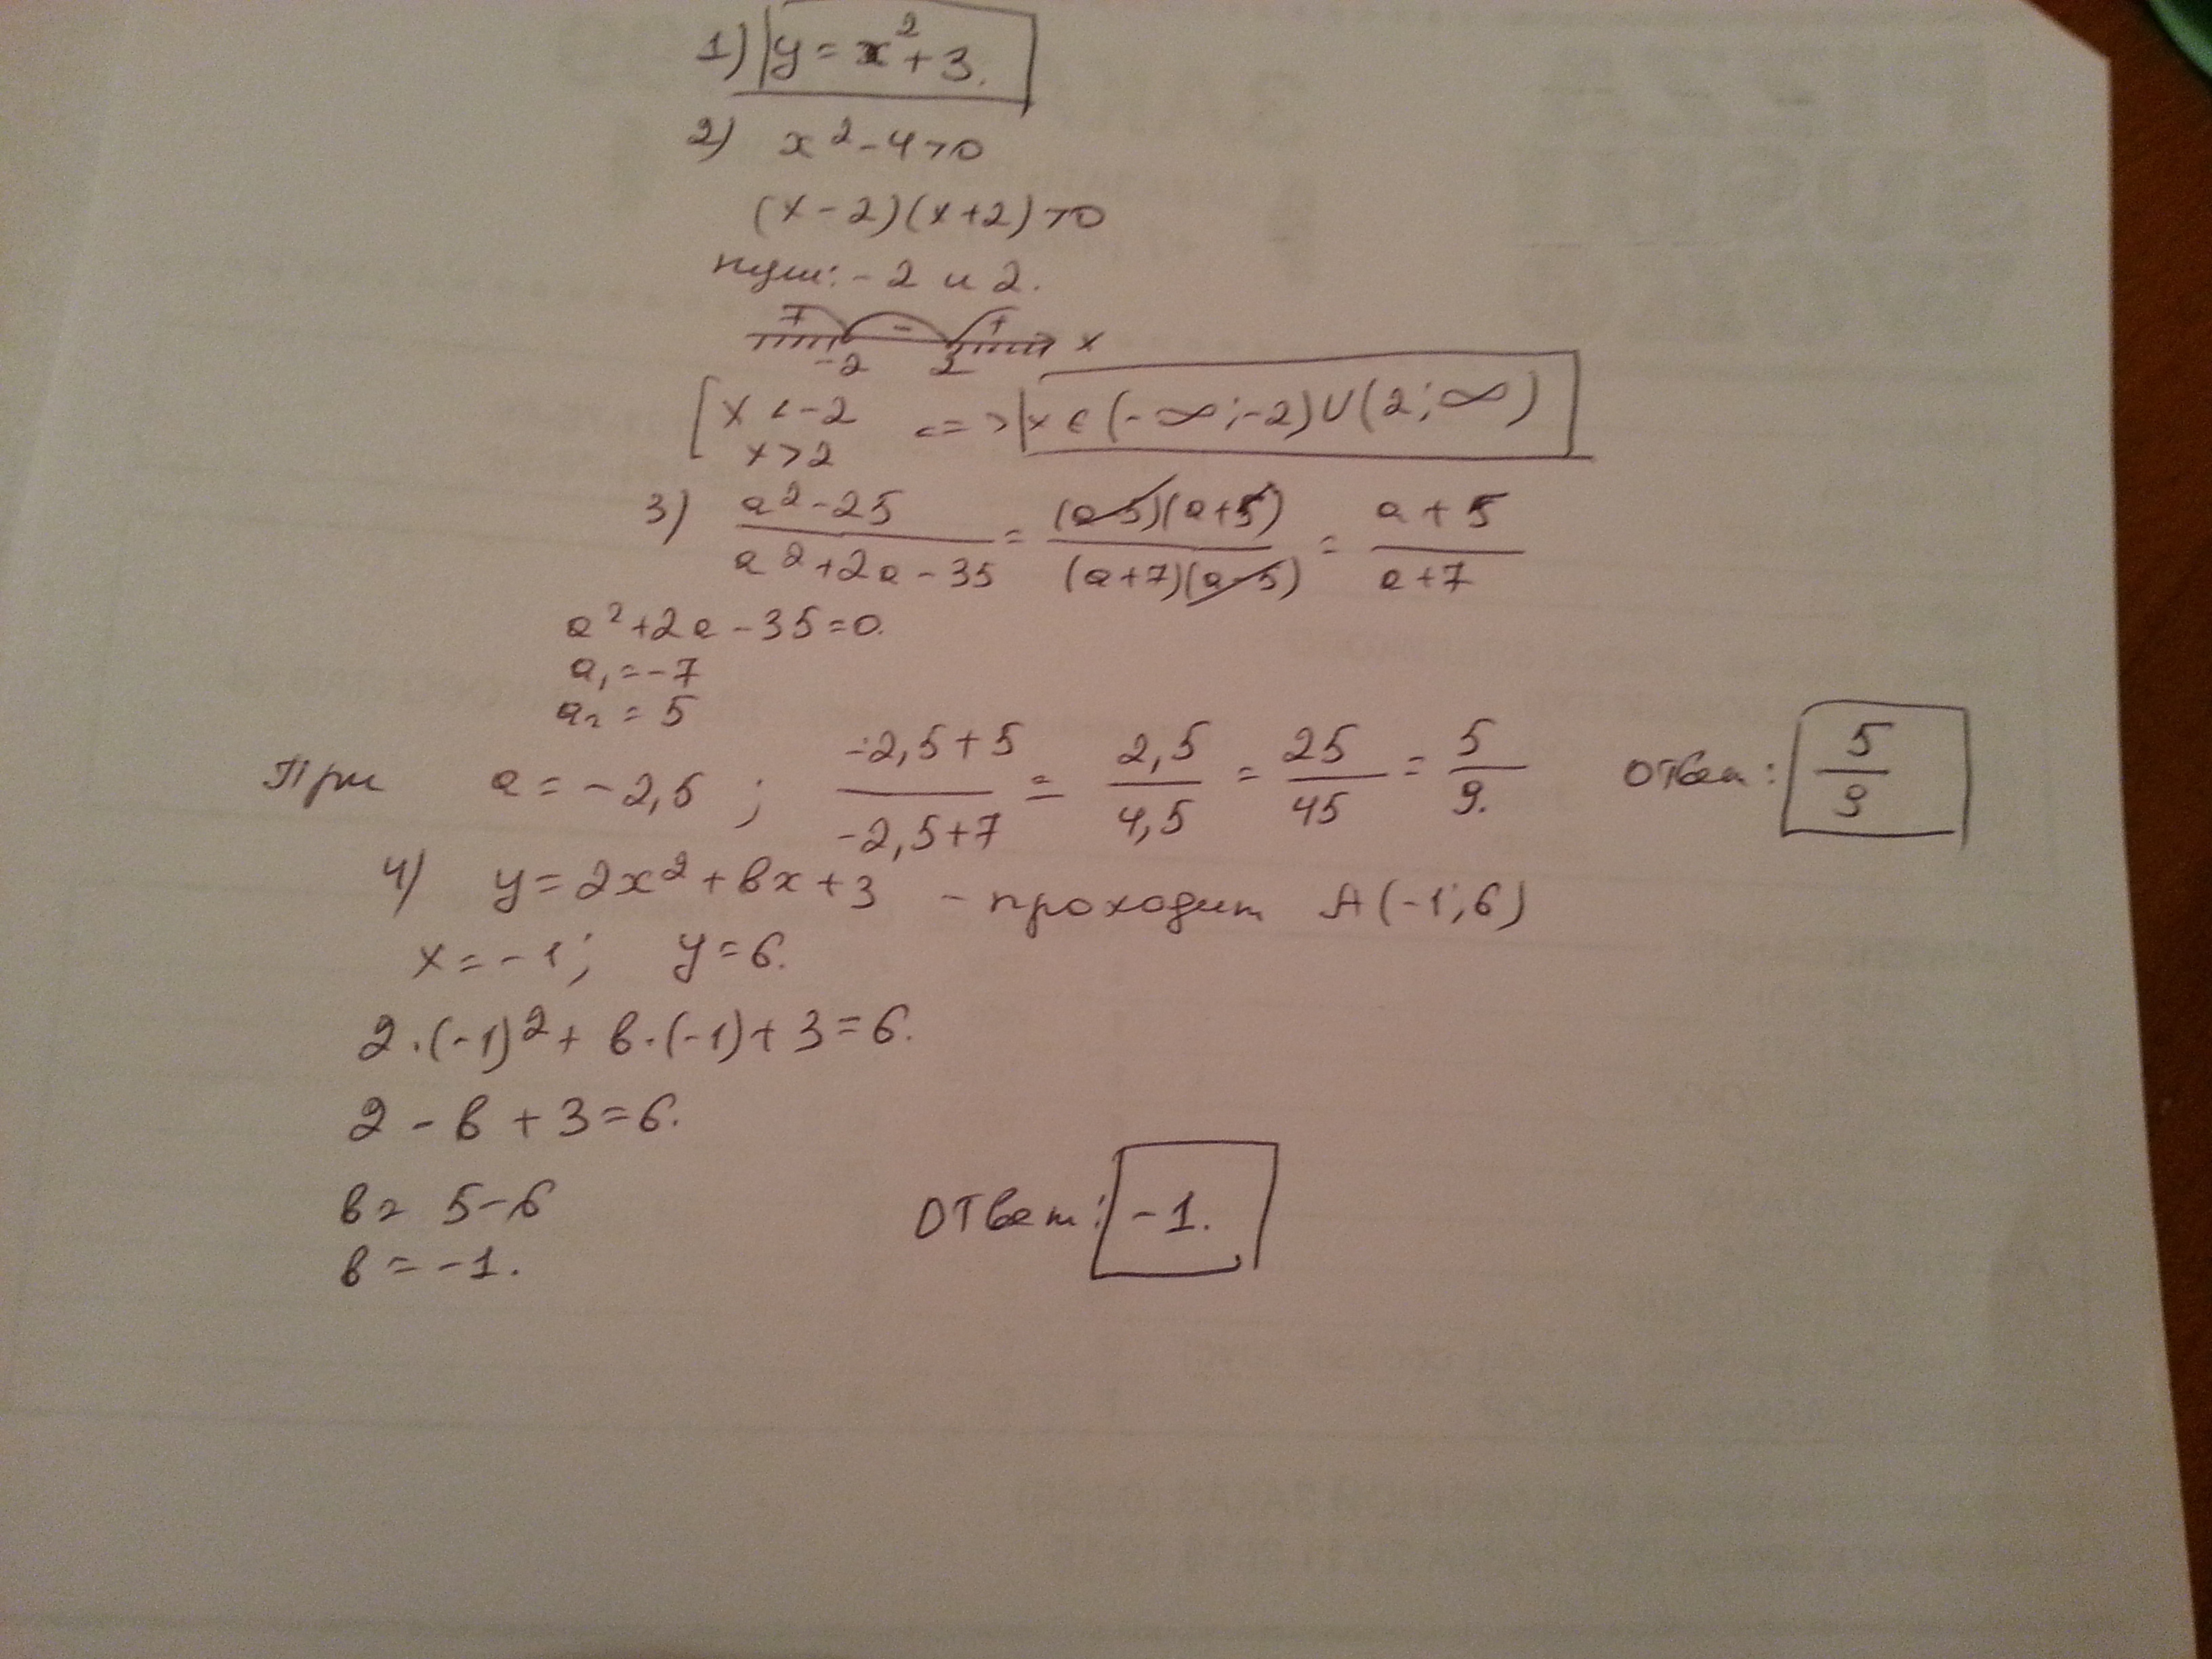 1) y = x² + 3.
2) x² - 4 > 0
(x - 2)(x + 2) > 0
нули: - 2 и 2.
+ - + x
-2 2
[ x < -2
x > 2 <=> x ∈ (-∞; -2) ∪ (2; ∞)
3) (a² - 25)/(a² + 2a - 35) = ((a-5)(a+5))/((a+7)(a-5)) = (a + 5)/(a + 7)
a² + 2a - 35 = 0.
a₁ = -7
a₂ = 5
При a = -2,5; (-2,5 + 5)/(-2,5 + 7) = 2,5/4,5 = 25/45 = 5/9. Ответ: 5/9
4) y = 2x² + вx + 3 - проходит A (-1; 6)
x = -1; y = 6.
2·(-1)² + в·(-1) + 3 = 6.
2 - в + 3 = 6.
в = 5 - 6
в = -1. Ответ: -1.